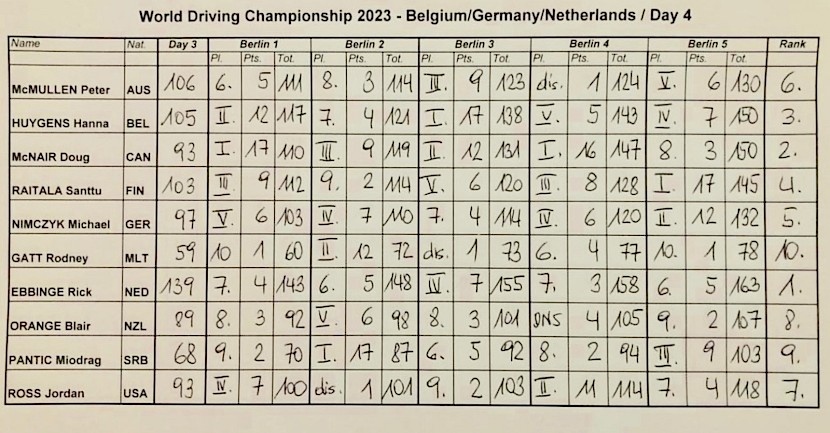 World Driving Championship 2023 - Belgium/Germany/Netherlands / Day 4
Name Nat. Day 3 Berlin 1 Berlin 2 Berlin 3 Berlin 4 Berlin 5 Rank
Pl. Pts. Tot. Pl. Pts. Tot. Pl. Pts. Tot. Pl. Pts. Tot. Pl. Pts. Tot.
McMULLEN Peter AUS 106 6. 5 111 8. 3 114 III. 9 123 dis. 1 124 V. 6 130 6.
HUYGENS Hanna BEL 105 II. 12 117 7. 4 121 I. 17 138 V. 5 143 IV. 7 150 3.
McNAIR Doug CAN 93 I. 17 110 III. 9 119 II. 12 131 I. 16 147 8. 3 150 2.
RAITALA Santtu FIN 103 III 9 112 9. 2 114 V. 6 120 III. 8 128 I. 17 145 4.
NIMCZYK Michael GER 97 V. 6 103 IV. 7 110 7. 4 114 IV. 6 120 II. 12 132 5.
GATT Rodney MLT 59 10 1 60 II. 12 72 dis. 1 73 6. 4 77 10. 1 78 10.
EBBINGE Rick NED 139 7. 4 143 6. 5 148 IV. 7 155 7. 3 158 6. 5 163 1.
ORANGE Blair NZL 89 8. 3 92 V. 6 98 8. 3 101 DNS 4 105 9. 2 107 8.
PANTIC Miodrag SRB 68 9. 2 70 I. 17 87 6. 5 92 8. 2 94 III. 9 103 9.
ROSS Jordan USA 93 IV. 7 100 dis. 1 101 9. 2 103 II. 11 114 7. 4 118 7.